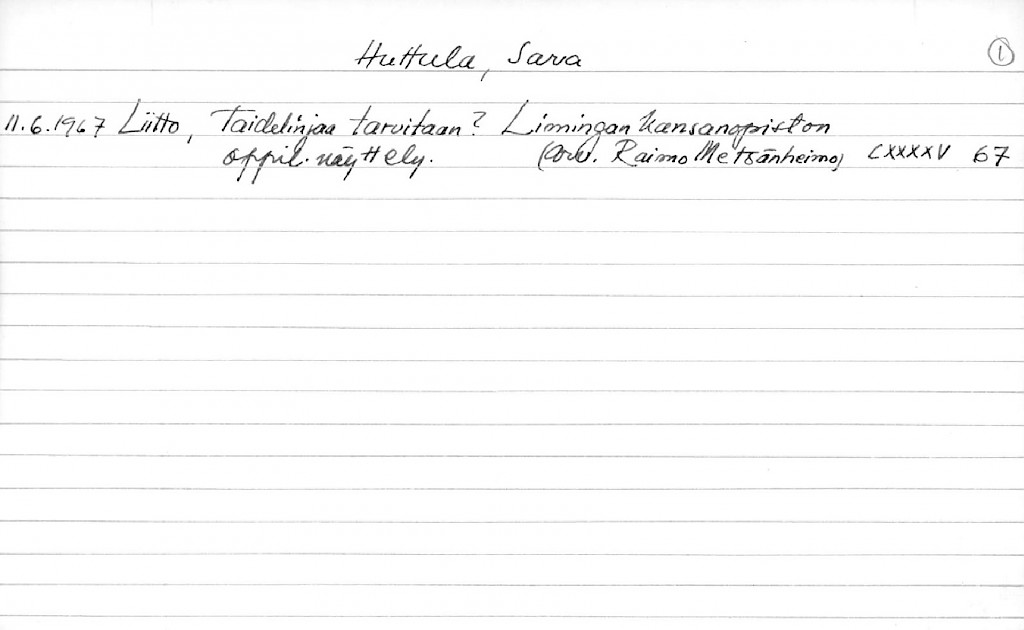 Huttula, Sara 1
11.6.1967 Liitto, Taidelinjaa tarvitaan? Limingan kansanopiston
oppil. näyttely. (arv. Raimo Metsänheimo) CXXXXV 67